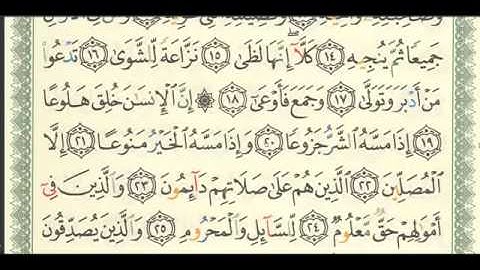 وَصَٰحِبَتِهِۦ وَأَخِيهِ ۝١٢ وَفَصِيلَتِهِ
جَمِيعًا ثُمَّ يُنجِيهِ ۝١٤ كَلَّآ ۖ إِنَّهَا لَظَىٰ ۝١٥ نَزَّاعَةً لِّلشَّوَىٰ ۝١٦ تَدْعُوا۟
مَنْ أَدْبَرَ وَتَوَلَّىٰ ۝١٧ وَجَمَعَ فَأَوْعَىٰٓ ۝١٨ ۞ إِنَّ ٱلْإِنسَٰنَ خُلِقَ هَلُوعًا
۝١٩ إِذَا مَسَّهُ ٱلشَّرُّ جَزُوعًا ۝٢٠ وَإِذَا مَسَّهُ ٱلْخَيْرُ مَنُوعًا ۝٢١ إِلَّا
ٱلْمُصَلِّينَ ۝٢٢ ٱلَّذِينَ هُمْ عَلَىٰ صَلَاتِهِمْ دَآئِمُونَ ۝٢٣ وَٱلَّذِينَ فِىٓ
أَمْوَٰلِهِمْ حَقٌّ مَّعْلُومٌ ۝٢٤ لِّلسَّآئِلِ وَٱلْمَحْرُومِ ۝٢٥ وَٱلَّذِينَ يُصَدِّقُونَ